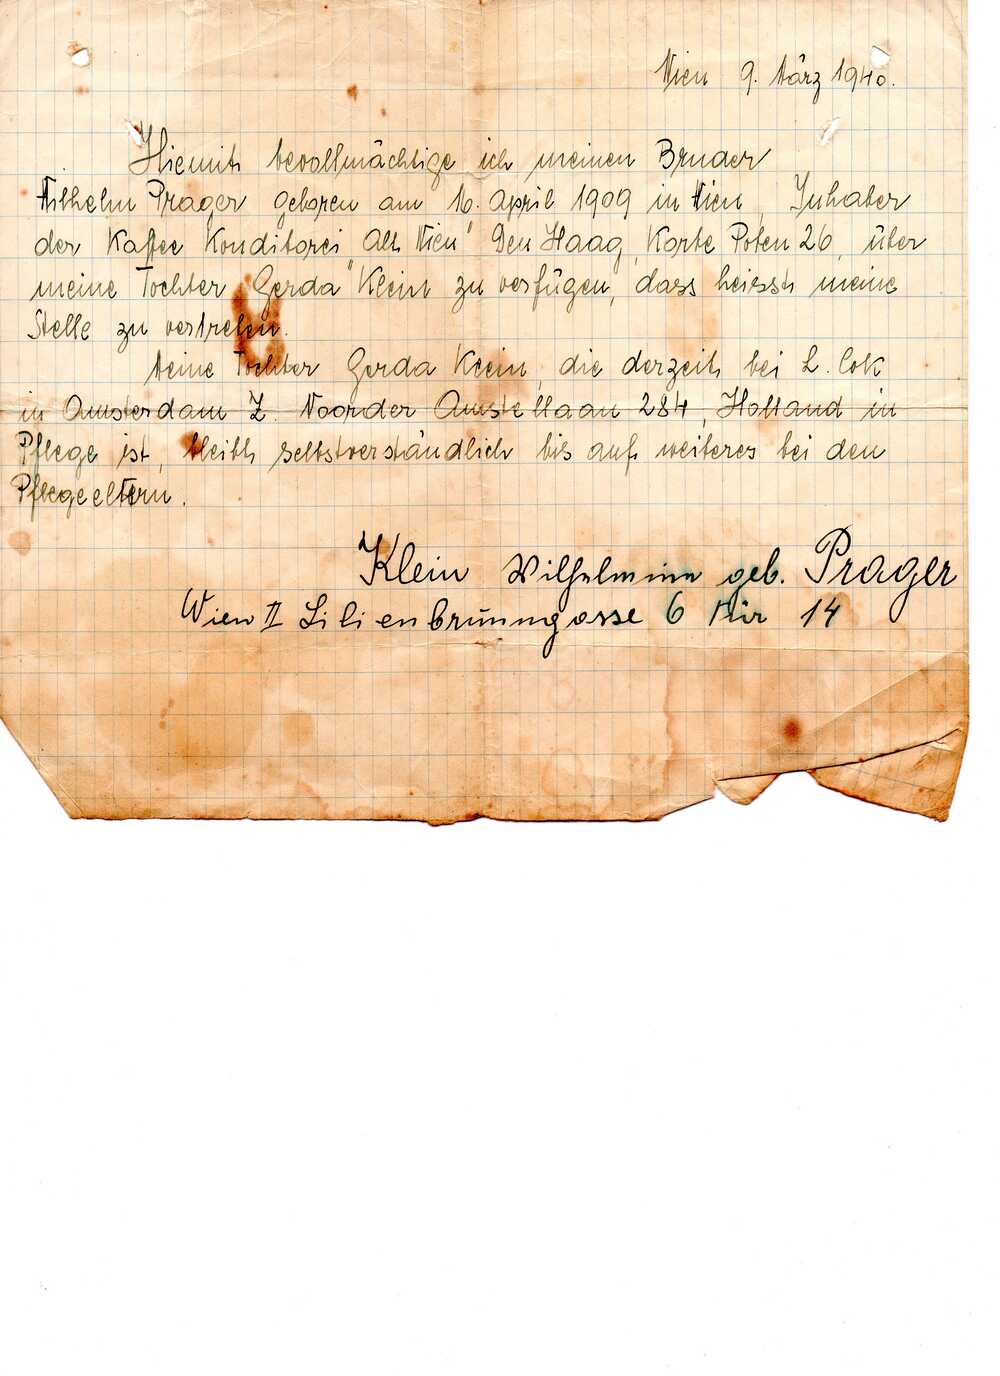 Wien 9. März 1940.
Hiemit bevollmächtige ich meinen Bruder
Wilhelm Prager geboren am 16. April 1909 in Wien, Inhaber
der Kaffee Konditorei "Alt Wien" Den Haag, Korte Poten 26, über
meine Tochter Gerda Klein zu verfügen, dass heisst meine
Stelle zu vertreten.
Meine Tochter Gerda Klein, die derzeit bei L. Cok
in Amsterdam Z. Noorder Amstellaan 284, Holland in
Pflege ist, bleibt selbstverständlich bis auf weiteres bei den
Pflegeeltern.
Klein Wilhelmine geb. Prager
Wien II Lilienbrunngasse 6 Tür 14